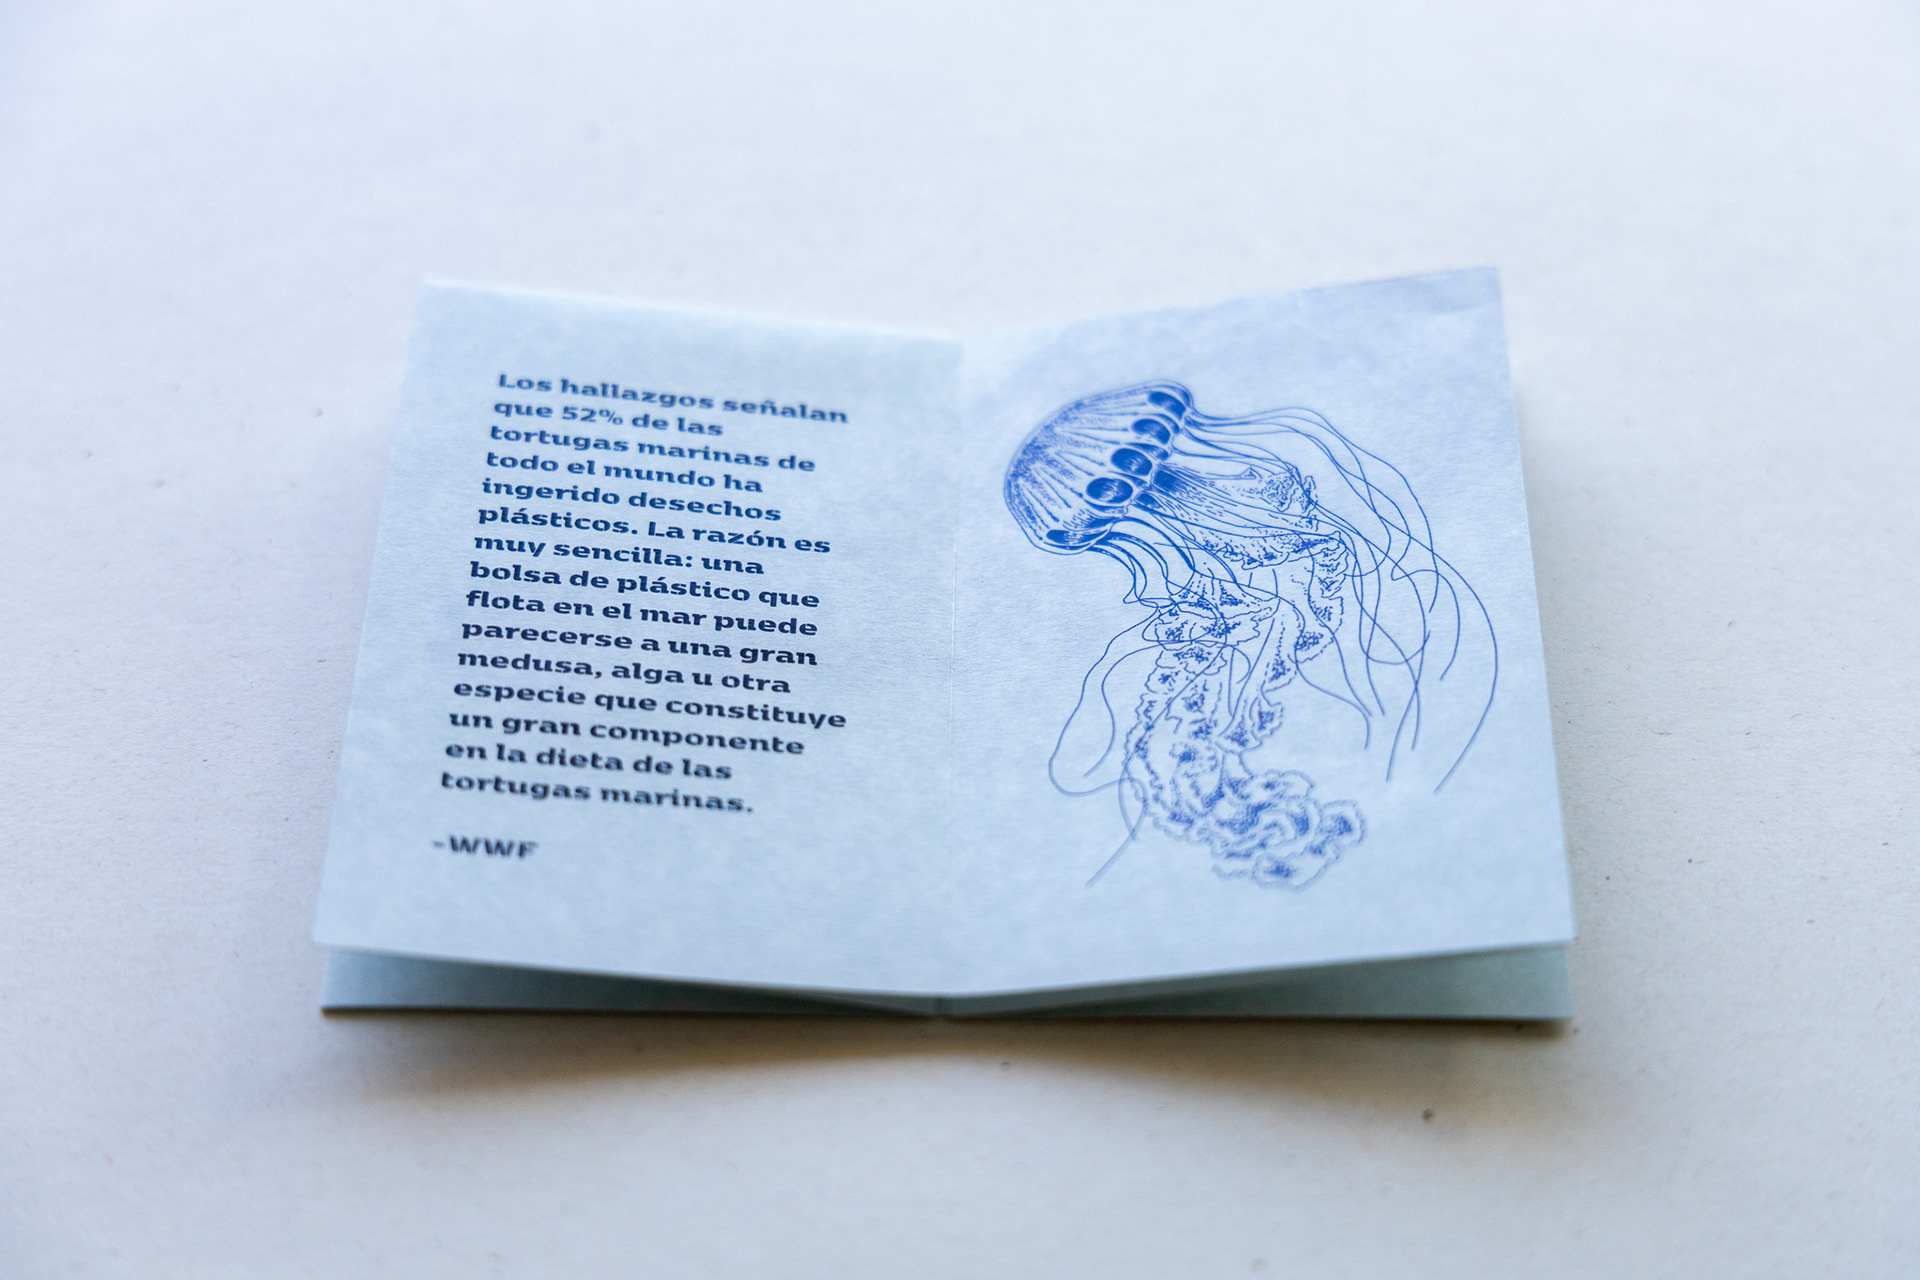 Los hallazgos señalan
que 52% de las
tortugas marinas de
todo el mundo ha
ingerido desechos
plásticos. La razón es
muy sencilla: una
bolsa de plástico que
flota en el mar puede
parecerse a una gran
medusa, alga u otra
especie que constituye
un gran componente
en la dieta de las
tortugas marinas.
-WWF